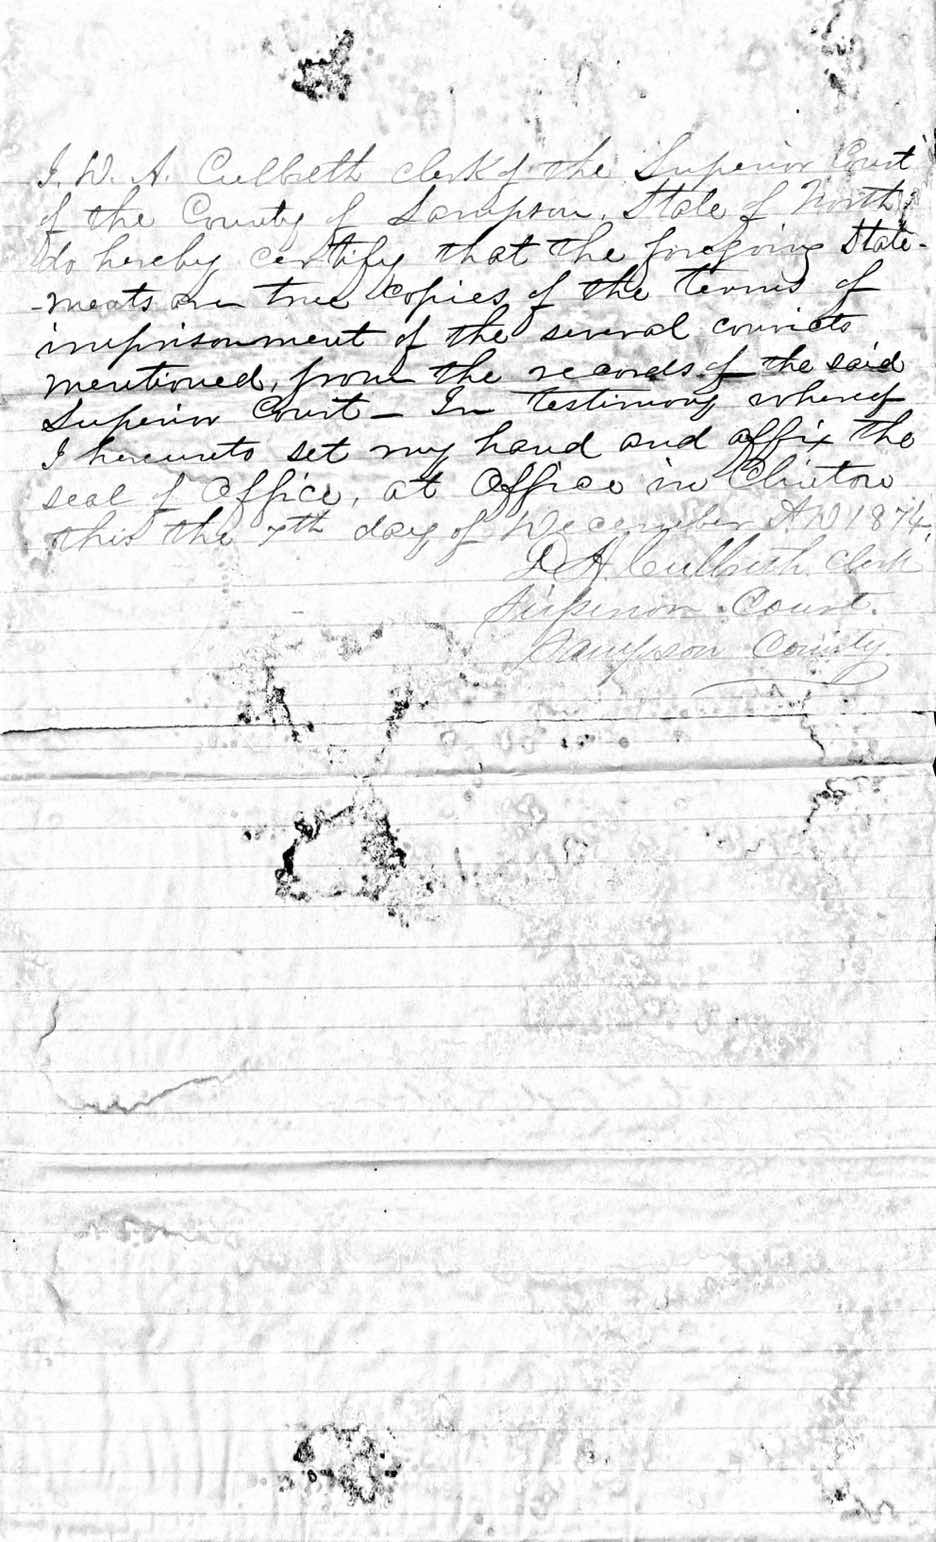 I, W. A. Culbreth clerk of the Superior Court
of the County of Sampson, State of North
do hereby certify that the foregoing State-
-ments are true copies of the terms of
imprisonment of the several convicts
mentioned, from the records of the said
Superior Court - In testimony whereof
I hereunto set my hand and affix the
seal of office, at Office in Clinton
this the 7th day of December AD 1874,
A. Culbreth clerk
Superior Court.
Sampson County.